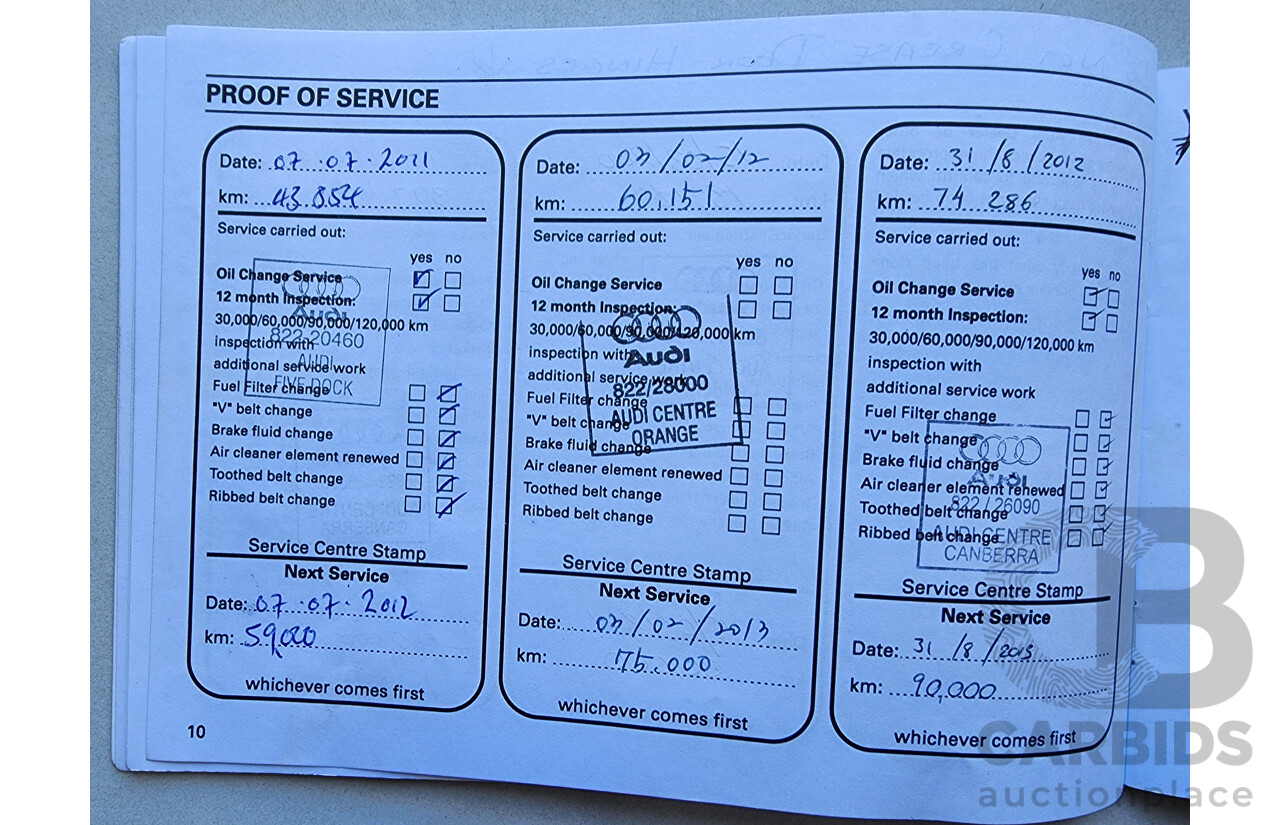 PROOF OF SERVICE
Date: 07.07.2011
km: 43.854
Service carried out:
yes no
Oil Change Service
12 month Inspection:
30,000/60,000/90,000/120,000 km
inspection with
additional service work
Fuel Filter change
"V" belt change
Brake fluid change
Air cleaner element renewed
Toothed belt change
Ribbed belt change
Audi
822 20460
AUDI
FIVE DOCK
Service Centre Stamp
Next Service
Date: 07.07.2012
km: 59,000
whichever comes first
Date: 03/02/12
km: 60,151
Service carried out:
yes no
Oil Change Service
12 month Inspection:
30,000/60,000/90,000/120,000 km
inspection with
additional service work
Fuel Filter change
"V" belt change
Brake fluid change
Air cleaner element renewed
Toothed belt change
Ribbed belt change
Audi
822/28000
AUDI CENTRE
ORANGE
Service Centre Stamp
Next Service
Date: 03/02/2013
km: 75.000
whichever comes first
Date: 31/8/2012
km: 74 286
Service carried out:
yes no
Oil Change Service
12 month Inspection:
30,000/60,000/90,000/120,000 km
inspection with
additional service work
Fuel Filter change
"V" belt change
Brake fluid change
Air cleaner element renewed
Toothed belt change
Ribbed belt change
Audi
822/26090
AUDI CENTRE
CANBERRA
Service Centre Stamp
Next Service
Date: 31/8/2013
km: 90,000
whichever comes first
10
B
CARBIDS
auctionplace